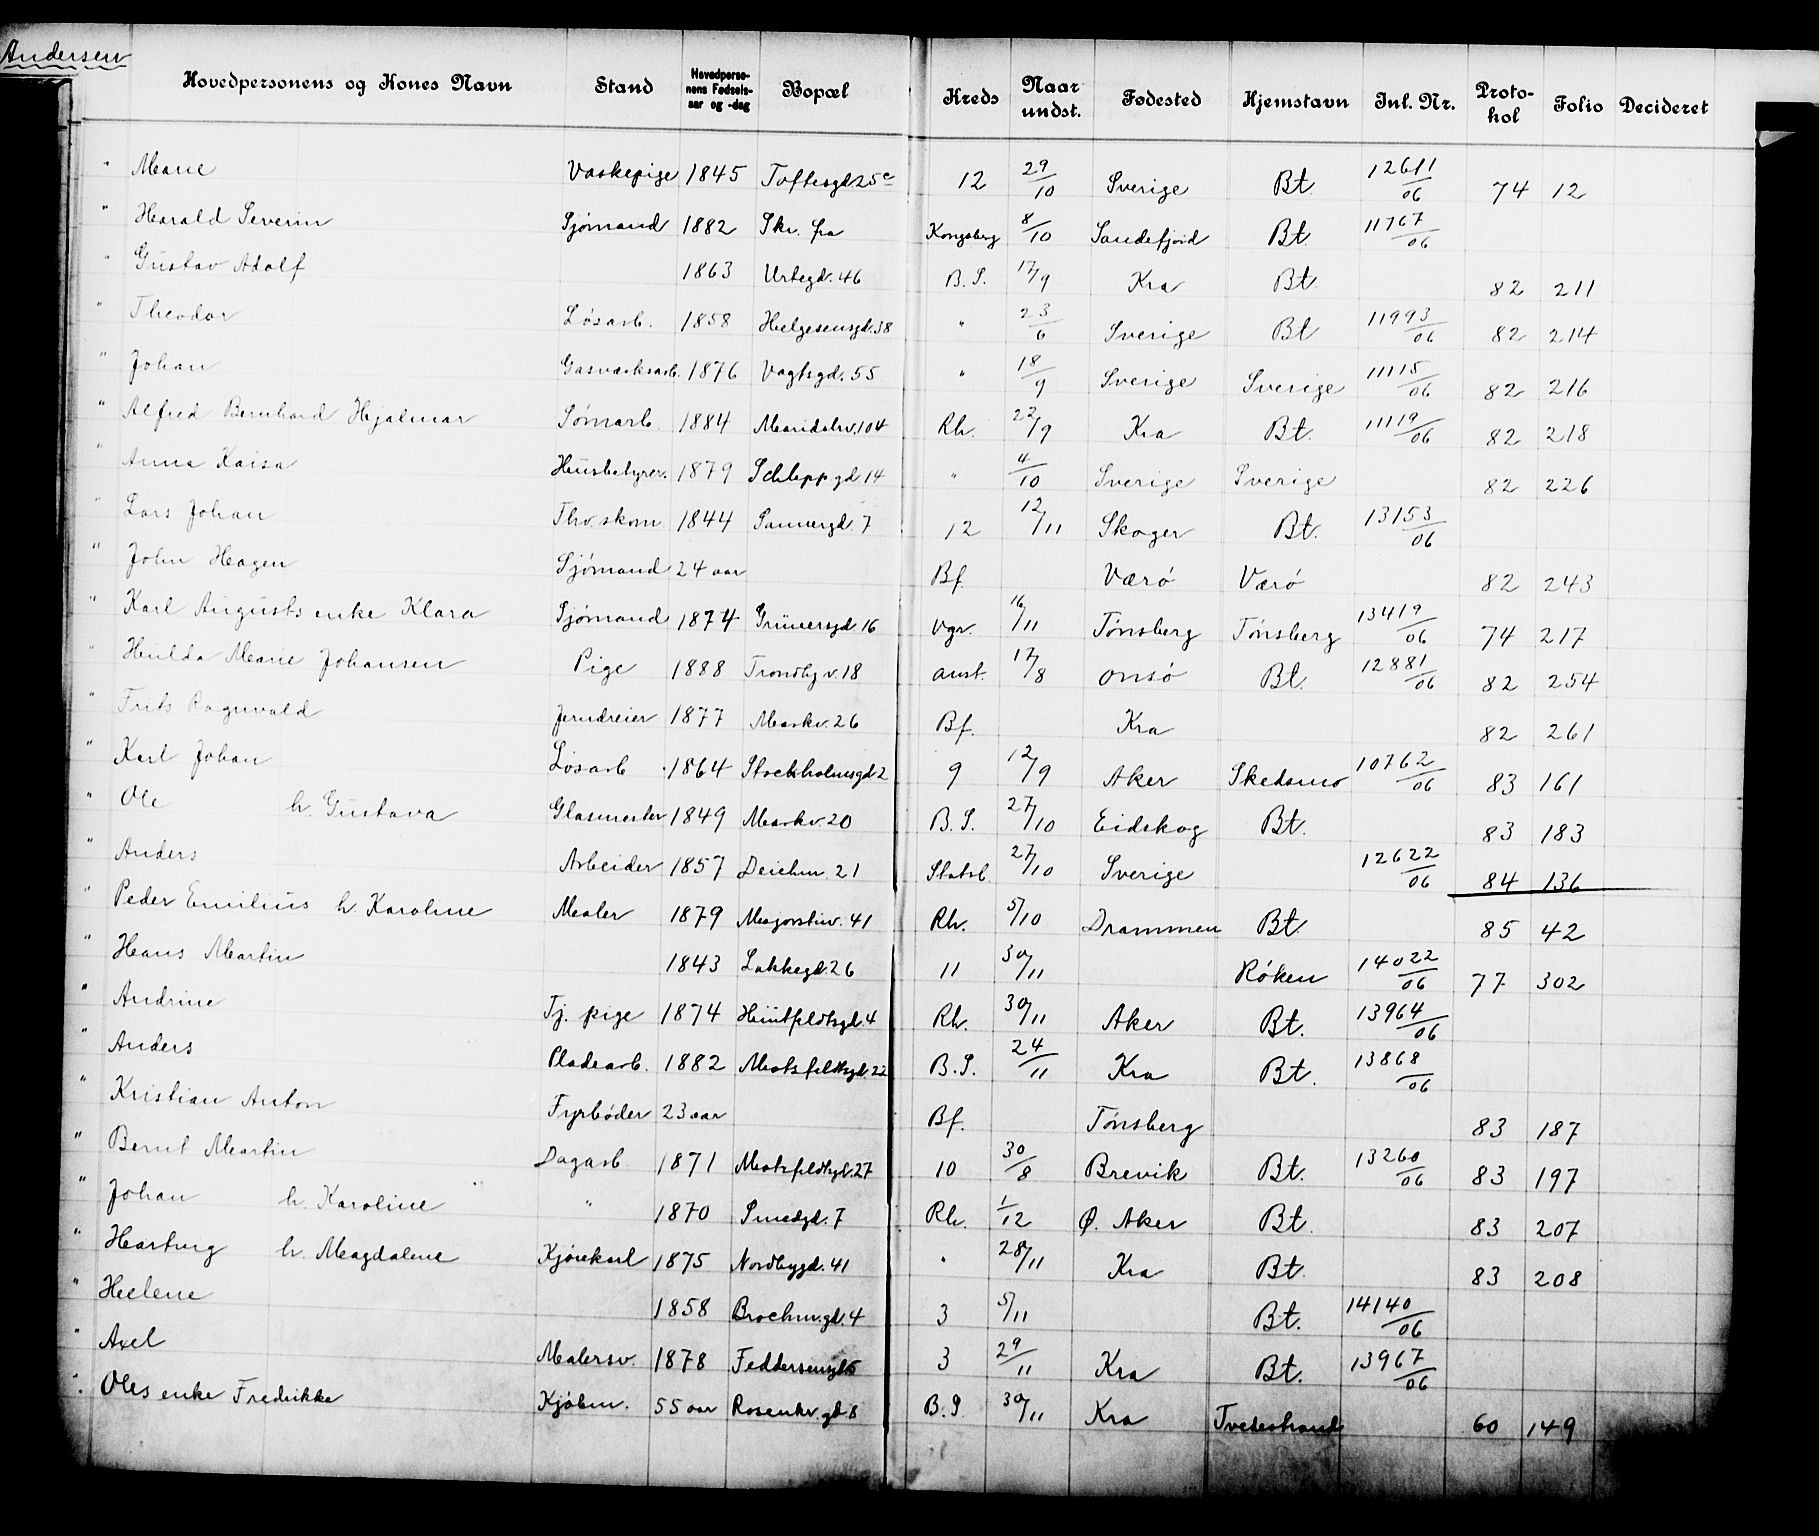 Andersen
Hovedpersonens og Kones Navn Stand Hovedpersonens Fødselsaar og -dag Bopæl Kreds Naar undst. Fødested Hjemstavn Inl. Nr. Protokol Folio Decideret
" Marie Vaskepige 1845 Toftesgd 25c 12 29/10 Sverige Bt. 12611/06 74 12
" Harald Severin Sjømand 1882 Skr. fra Kongsberg 8/10 Sandefjord Bt 11767/06
" Gustav Adolf 1863 Urtegd. 46 B. S. 17/9 Kra Bt. 82 211
" Theodor Løsarb. 1858 Helgesensgd. 38 " 23/6 Sverige Bt 11993/06 82 214
" Johan Gasværksarb. 1876 Vogtsgd. 55 " 18/9 Sverige Sverige 11115/06 82 216
" Alfred Bernhard Hjalmar Tømarb. 1884 Maridalsv. 104 Rh. 22/9 Kra Bt. 11119/06 82 218
" Anna Kaisa Husbestyrer. 1879 Schleppgd 14 " 4/10 Sverige Sverige 82 226
" Lars Johan Thv. skom 1844 Sannergd. 7 12 12/11 Skoger Bt. 13153/06
" John Hagen Sjømand 24 aar Bf. Værø Værø 82 243
" Karl Augusts enke Klara Sjømand 1874 Grünersgd 16 Vgv. 16/11 Tønsberg Tønsberg 13419/06 74 217
" Hulda Marie Johansen Pige 1888 Trondhj v. 18 anst. 17/8 Onsø Bt. 12881/06 82 254
" Frits Ragnvald Jerndreier 1877 Markv. 26 Bf. Kra 82 261
" Karl Johan Løsarb 1864 Stockholmsgd 2 9 12/9 Aker Skedsmo 10762/06 83 161
" Ole h. Gustava Glasmester 1849 Markv. 20 B. S. 27/10 Eidskog Bt. 83 183
" Anders Arbeider 1857 Deichm. 21 Statsb. 27/10 Sverige 12622/06 84 136
" Peder Emilius h. Karoline Maler 1879 Majorstuv. 41 Rh. 5/10 Drammen Bt. 85 42
" Hans Martin 1843 Lakkegd. 26 11 30/11 Røken 14022/06 77 302
" Andrine Tj. pige 1874 Huitfeldtsgd. 4 Rh. 30/11 Aker Bt. 13964/06
" Anders Pladearb. 1882 Motzfeldtsgd. 22 B. S. 24/11 Kra Bt. 13868/06
" Kristian Anton Fyrbøder 23 aar Bf. Tønsberg 83 187
" Bernt Martin Dagarb 1871 Motzfeldtsgd. 27 10 30/8 Brevik Bt. 13260/06 83 197
" Johan h. Karoline " 1870 Smedgd. 7 Rh. 1/12 Ø. Aker Bt. 83 207
" Hartvig h. Magdalene Kjørekarl 1875 Nordbygd. 41 " 28/11 Kra Bt. 83 208
" Helene 1858 Brochm. gd. 4 3 5/11 Bt. 14140/06
" Axel Malersv. 1878 Feddersensgd 5 3 29/11 Kra Bt. 13967/06
" Oles enke Fredrikke Kjøbm. 55 aar Rosenkr. gd. 8 B. S. 30/11 Kra Tvedestrand 60 149